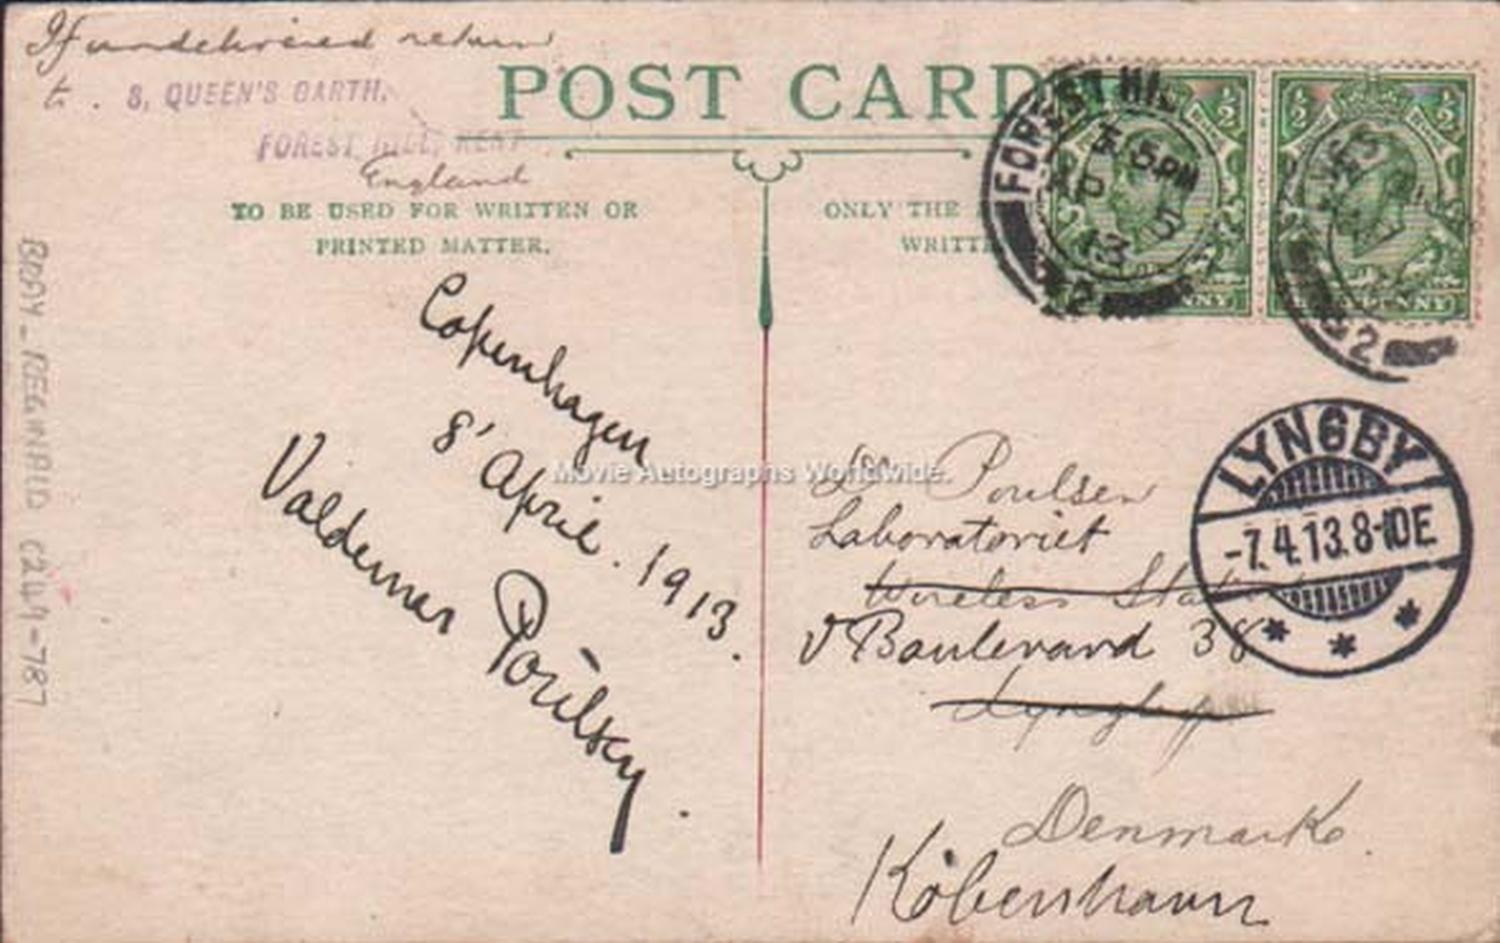 If undelivered return
to. 8, QUEEN'S GARTH,
FOREST HILL, KENT
England
POST CARD
TO BE USED FOR WRITTEN OR
PRINTED MATTER.
ONLY THE
FOREST HIL
5.5PM
AP 5
13
2
½ ½
½ ½
2
LYNGBY
-7.4.13.8-10E
Copenhagen
8' April. 1913.
Valdemar Poulsen.
Movie Autographs Worldwide.
Dr Poulsen
Laboratoriet
Wireless
V Boulevard 38
Lyngby
Denmark.
Köbenhavn
BRAY - REGINALD C249-787